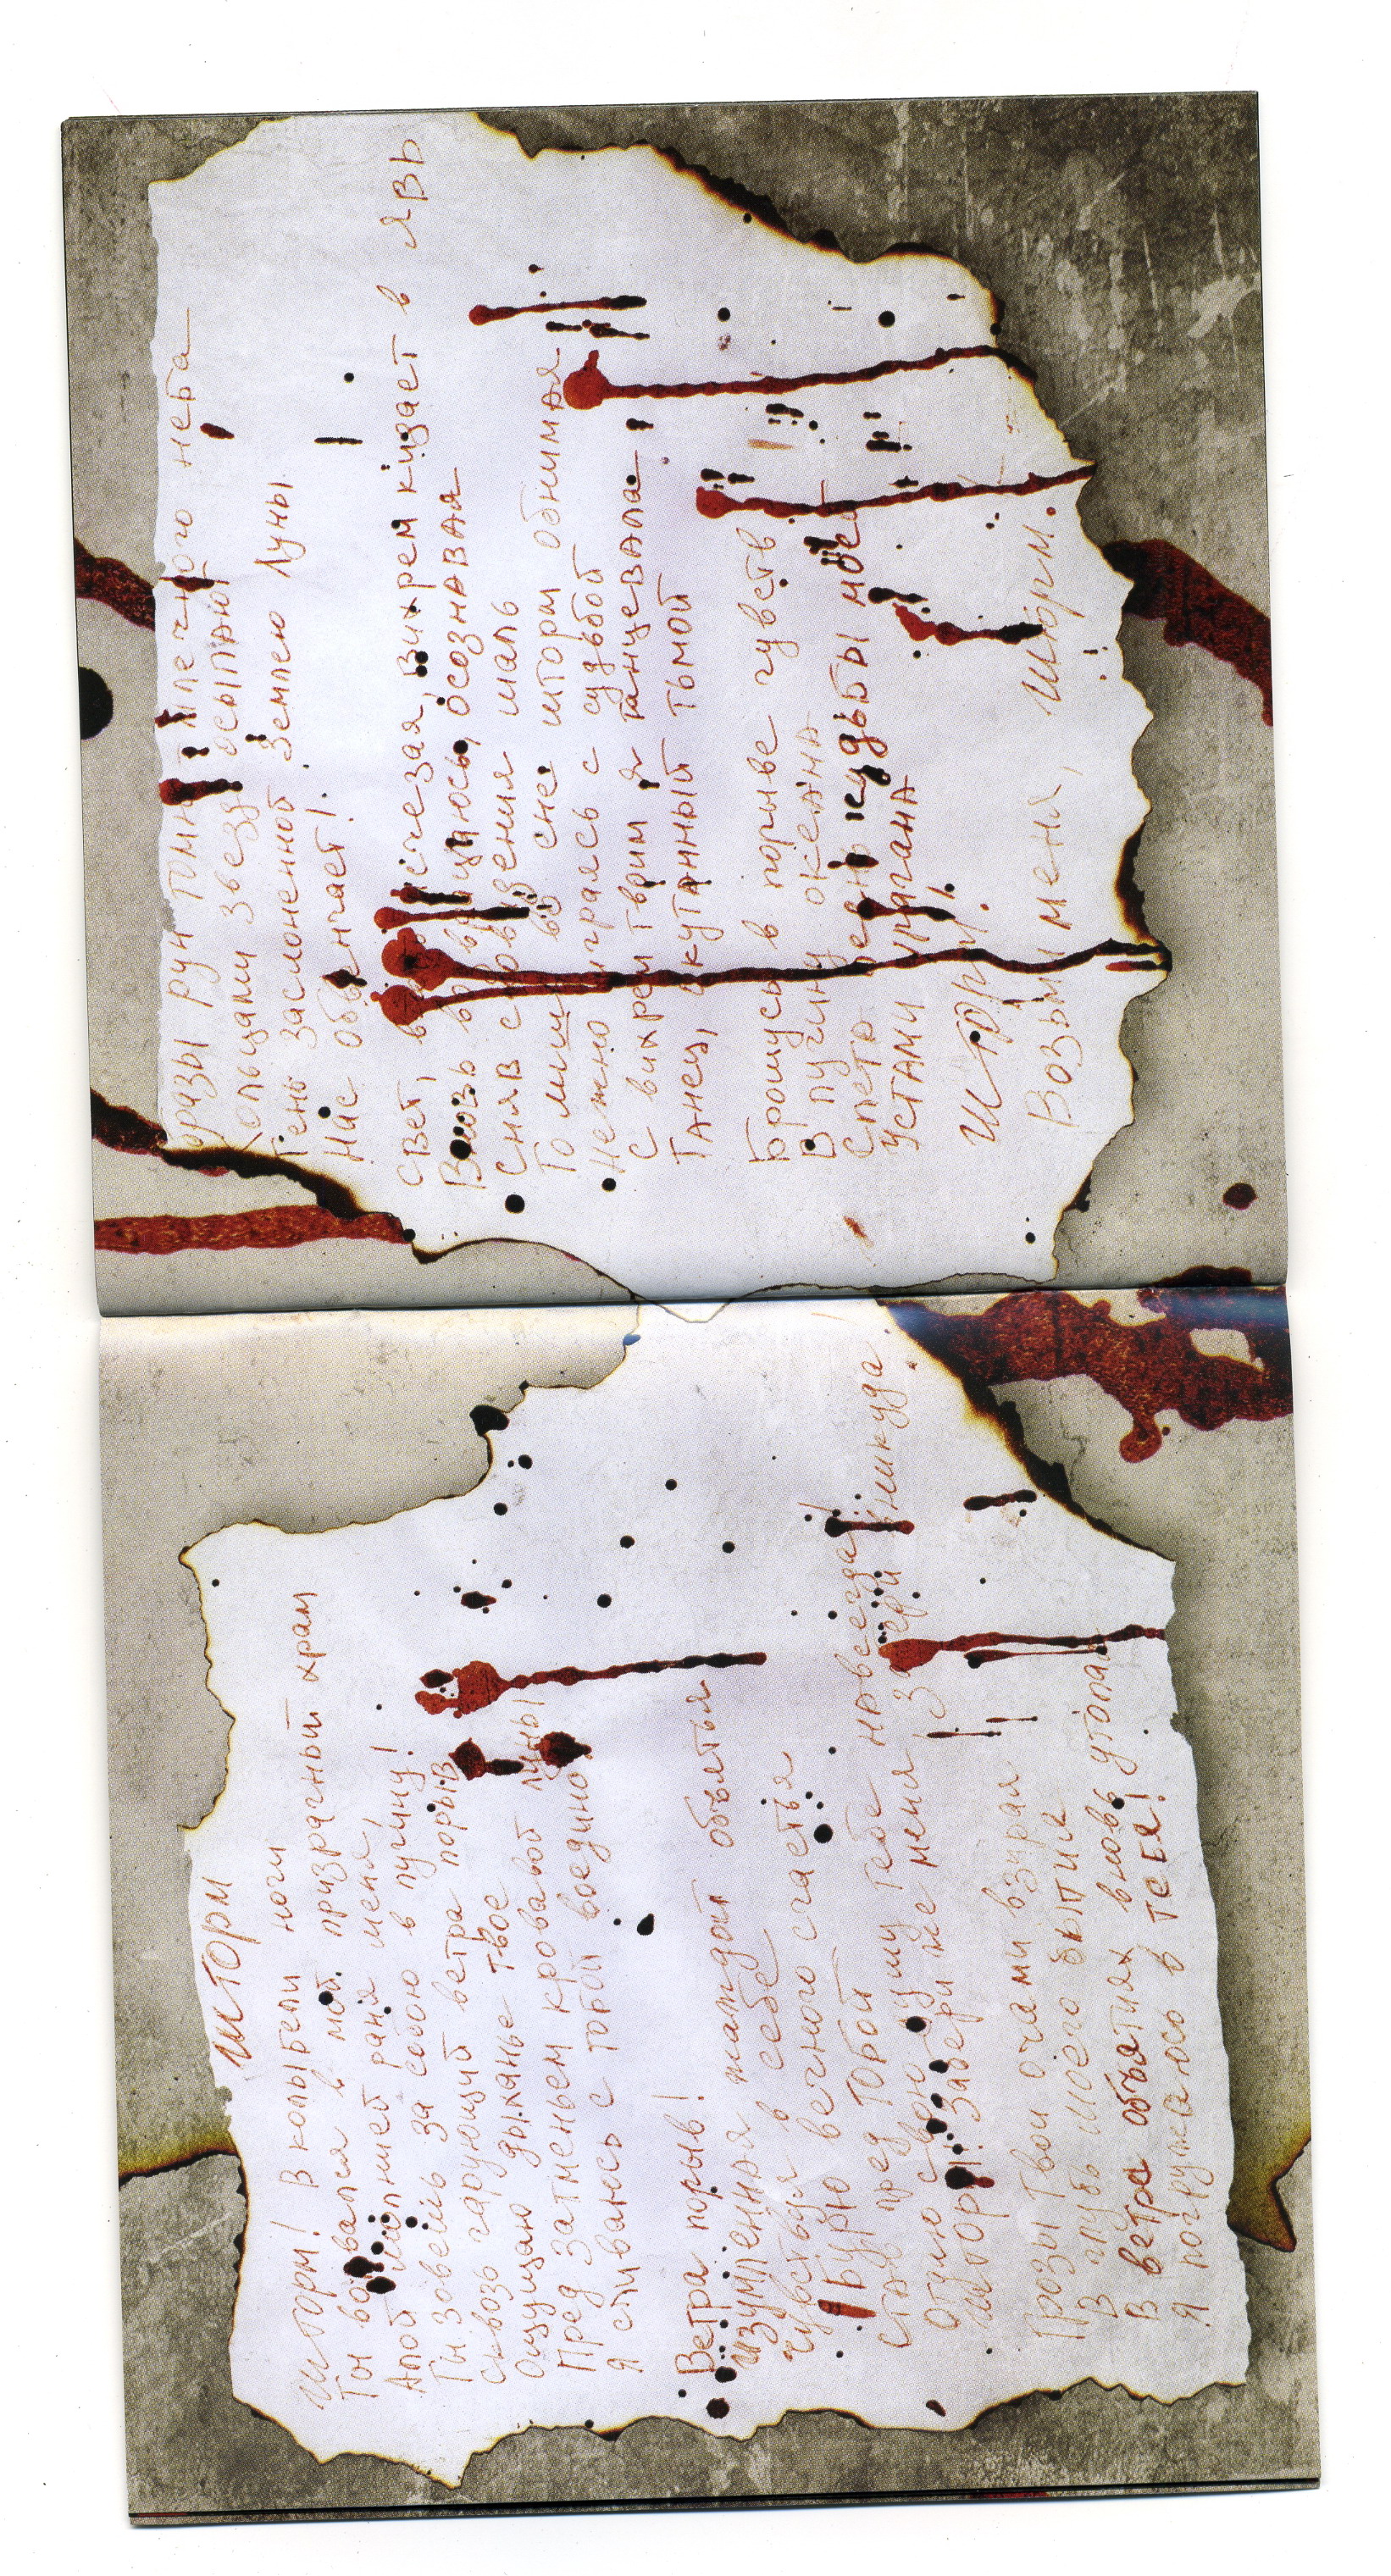 ШТОРМ
Шторм! В колыбели ночи
Ты ворвался в мой призрачный храм
Алой молнией раня меня,
Ты зовёшь за собою в пучину!
Сквозь чарующий ветра порыв
Ощущаю дыханье твоё
Пред затменьем кровавой луны
Я сливаюсь с тобой воедино!
Ветра порыв!
Изумлённая жаждой объятья
Чувствуя в себе
Бурю вечного счастья
Став пред тобой
Отдаю свою душу тебе навсегда!
Шторм! Забери же меня в никуда.
Грозы твои очами взирая
В глубь моего бытия
В ветра объятиях вновь утопая
Я погружаюсь в тебя!
розы рун млечного неба
Кольцами звёзд осыпают
Тень заслонённой Землею Луны
Нас обвенчает!
Свет, исчезая, вихрем кидает в явь
Вновь возвращаюсь, осознавая
Сняв сновидения шаль
То лишь во сне шторм обнимая
Нежно играясь с судьбой
С вихрем твоим я танцевала
Танец, окутанный тьмой
Брошусь в порыве чувств
В пучину океана
Спета песнь судьбы моей
Устами урагана
Шторм!
Возьми меня, шторм.